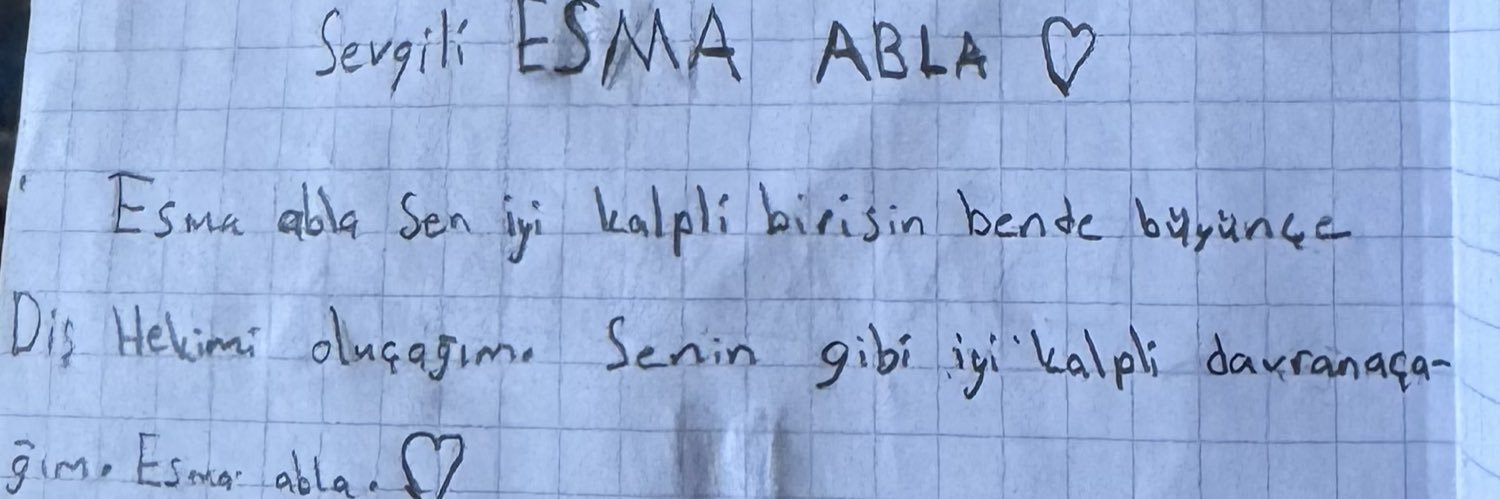 Sevgili ESMA ABLA ♡
Esma abla Sen iyi kalpli birisin bende büyünçe
Diş Hekimi oluçağım. Senin gibi iyi kalpli davranaça-
ğım. Esma abla. ♡